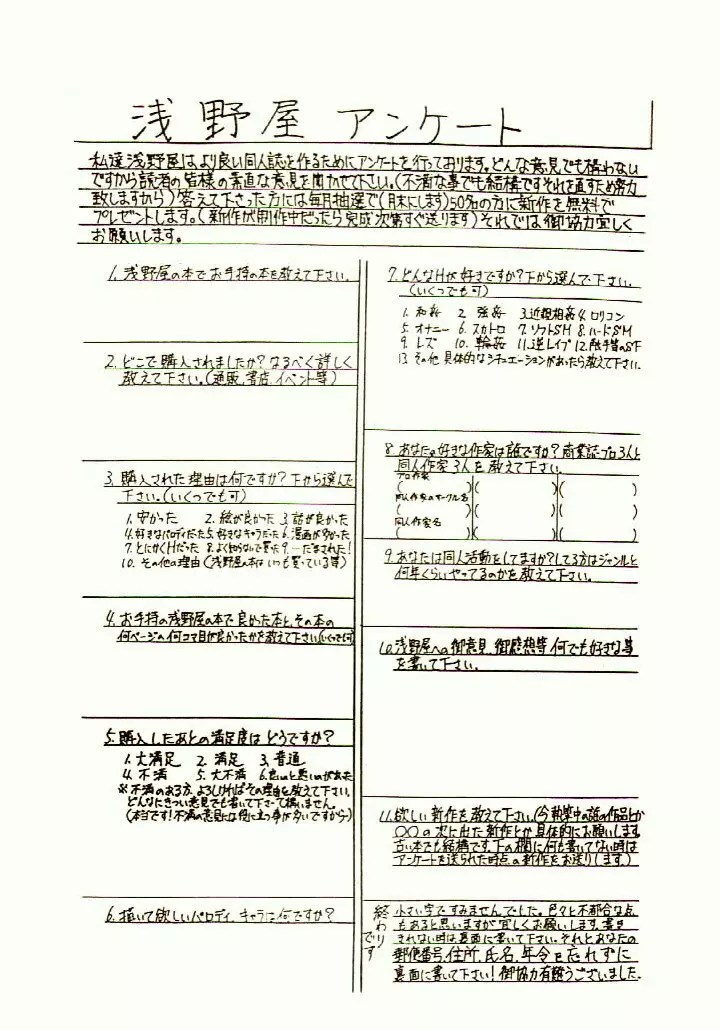 浅野屋 アンケート
私達浅野屋はより良い同人誌を作るためにアンケートを行っております。どんな意見でも構わない
ですから読者の皆様の素直な意見を聞かせて下さい。(不満な事でも結構ですそれを直すため努力
致しますから)答えて下さった方には毎月抽選で(月末にします)50%の方に新作を無料で
プレゼントします。(新作が制作中だったら完成次第すぐ送ります)それでは御協力宜しく
お願いします。
1. 浅野屋の本でお手持の本を教えて下さい。
2. どこで購入されましたか?なるべく詳しく
教えて下さい。(通販、書店、イベント等)
3. 購入された理由は何ですか?下から選んで
下さい。(いくつでも可)
1. 安かった 2. 絵が良かった 3. 話が良かった
4. 好きなパロディだった 5. 好きなキャラだった 6. 漫画が多かった
7. とにかくHだった 8. よく知らないで買った 9. 一だまされた!
10. その他の理由(浅野屋の本はいつも買っている等)
4. お手持の浅野屋の本で良かった本と、その本の
何ページの何コマ目が良かったかを教えて下さい(いくつでも可)
5. 購入したあとの満足度はどうですか?
1. 大満足 2. 満足 3. 普通
4. 不満 5. 大不満 6. 良いのと悪いのがあった
※不満のある方、よろしければその理由を教えて下さい。
どんなにきつい意見でも書いて下さって構いません。
(本当です!不満の意見には役に立つ事が多いですから)
6. 描いて欲しいパロディ、キャラは何ですか?
7. どんなHが好きですか?下から選んで下さい。
(いくつでも可)
1. 和姦 2. 強姦 3. 近親相姦 4. ロリコン
5. オナニー 6. スカトロ 7. ソフトSM 8. ハードSM
9. レズ 10. 輪姦 11. 逆レイプ 12. 触手等のSF
13. その他 具体的なシチュエーションがあったら教えて下さい。
8. あなたの好きな作家は誰ですか?商業誌・プロ3人と
同人作家3人を教えて下さい。
プロ作家
( )( )( )
同人作家のサークル名
( )( )( )
同人作家名
( )( )( )
9. あなたは同人活動をしてますか?してる方はジャンルと
何年くらいやってるのかを教えて下さい。
10. 浅野屋への御意見、御感想等何でも好きな事
を書いて下さい。
11. 欲しい新作を教えて下さい。(今執筆中の話の作品とか
〇〇の次に出た新作とか具体的にお願いします。
古い本でも結構です。下の欄に何も書いてない時は
アンケートを送られた時点の新作をお送りします。)
終わりです
小さい字ですみませんでした。色々と不都合な点
もあると思いますが宜しくお願いします。書き
きれない時は、裏面に書いて下さい。それとあなたの
郵便番号、住所、氏名、年令を忘れずに
裏面に書いて下さい!御協力有難うございました。